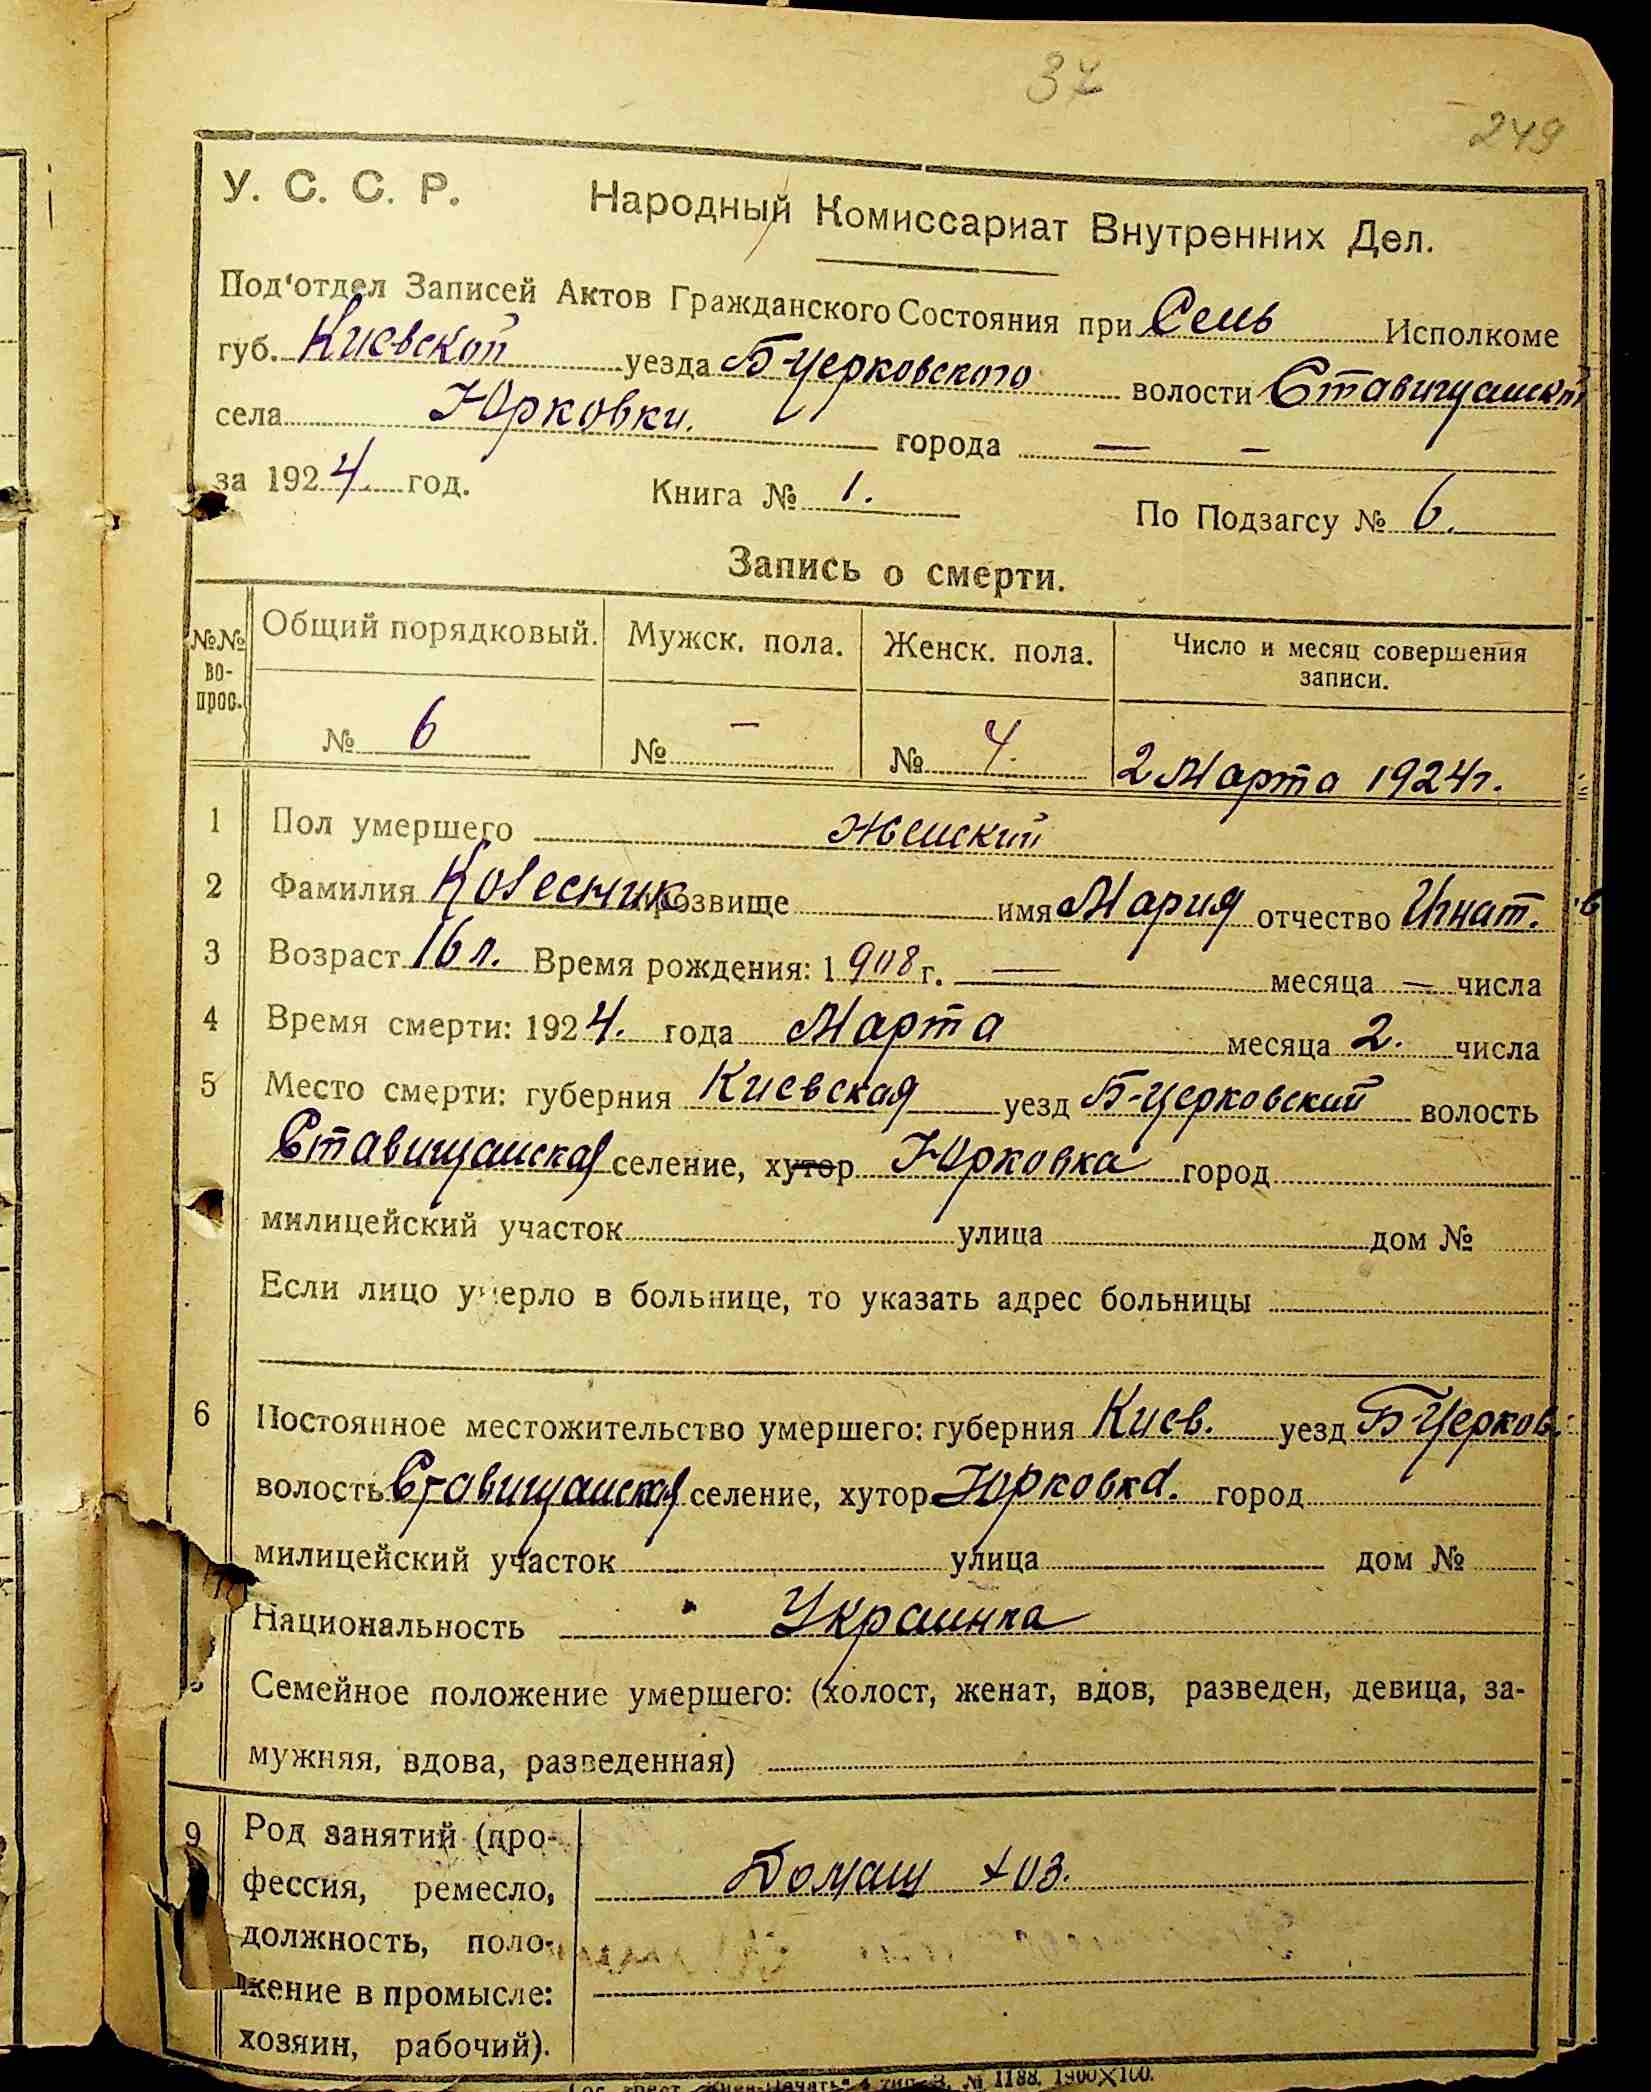 37
249
У. С. С. Р. Народный Комиссариат Внутренних Дел.
Под'отдел Записей Актов Гражданского Состояния при Сель Исполкоме
губ. Киевской уезда Б-Церковского волости Ставищанской
села Юрковки. города — -
за 1924 год. Книга № 1. По Подзагсу № 6.
Запись о смерти.
№№ во-прос. Общий порядковый. Мужск. пола. Женск. пола. Число и месяц совершения записи.
№ 6 № - № 4. 2 Марта 1924 г.
1 Пол умершего женский
2 Фамилия Колесник прозвище имя Мария отчество Игнат.
3 Возраст 16 л. Время рождения: 1908 г. — месяца — числа
4 Время смерти: 1924. года Марта месяца 2. числа
5 Место смерти: губерния Киевская уезд Б-Церковский волость
Ставищанская селение, хутор Юрковка город
милицейский участок улица дом №
Если лицо умерло в больнице, то указать адрес больницы
6 Постоянное местожительство умершего: губерния Киев. уезд Б-Церков.
волость Ставищанская селение, хутор Юрковка. город
милицейский участок улица дом №
Национальность Украинка
Семейное положение умершего: (холост, женат, вдов, разведен, девица, за-
мужняя, вдова, разведенная)
9 Род занятий (про-
фессия, ремесло, Домаш хоз.
должность, поло-
жение в промысле:
хозяин, рабочий).
№ 1188. 1900X100.